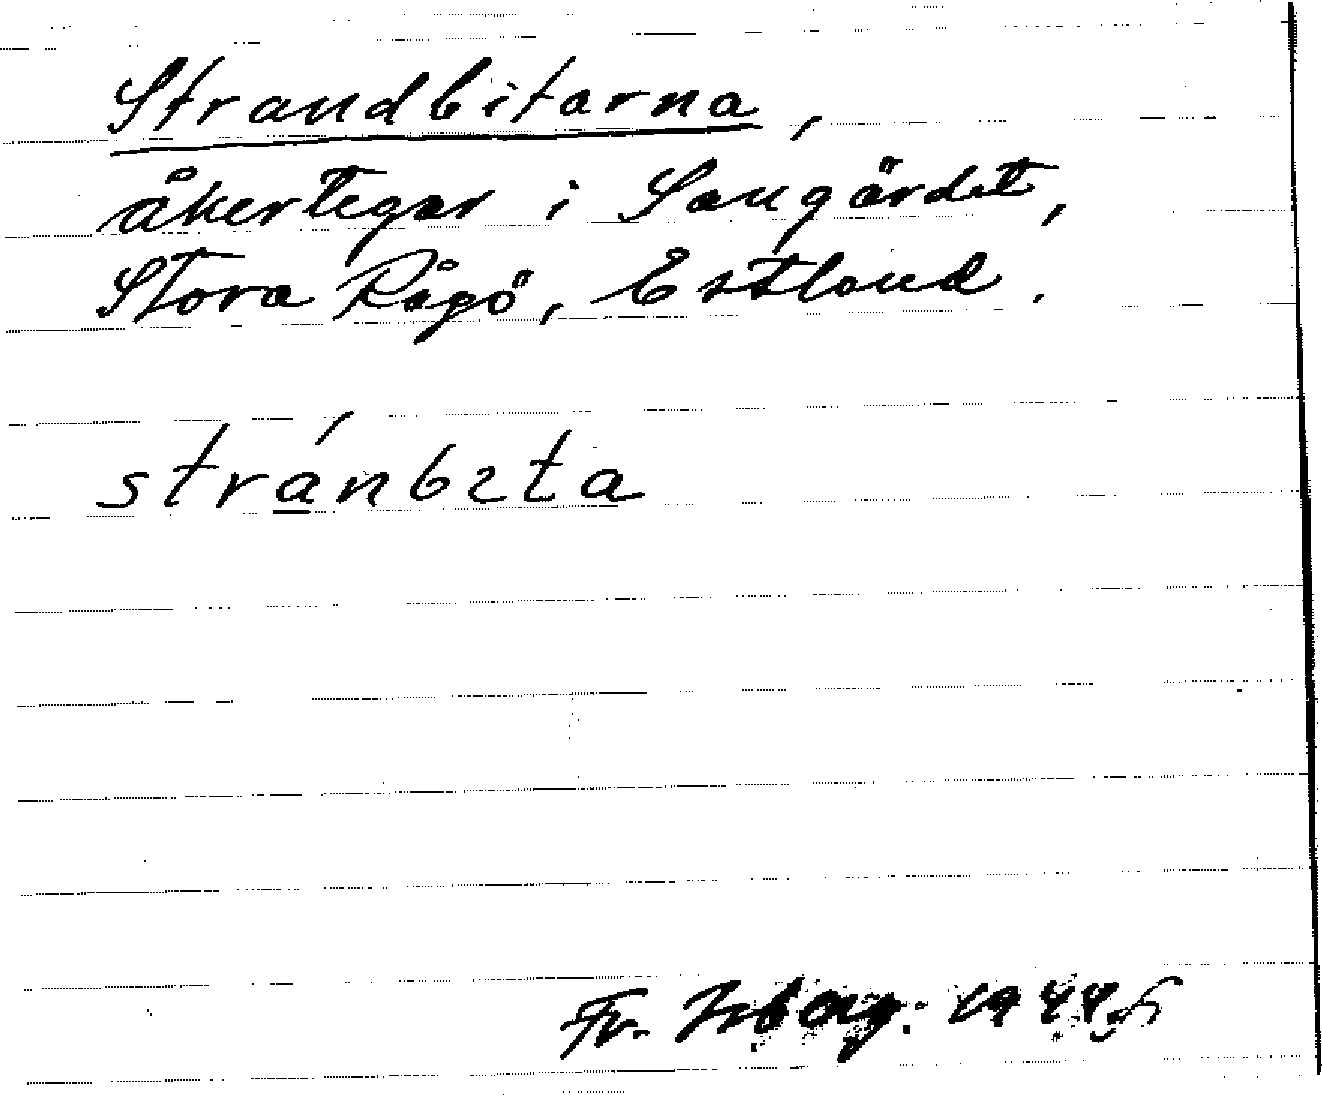 Strandbitarna,
åkertegar i Saugärdet,
Stora Rågö, Estland.
stránbɩta
Fr. Isberg. 1944